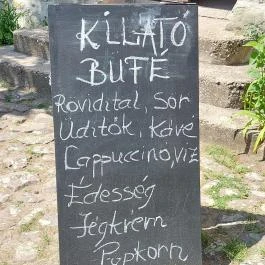 KILÁTÓ
BÜFÉ
Rövidital, Sör
Üdítők, Kávé
Cappuccino, víz
Édesség
Jégkrém
Popkorn